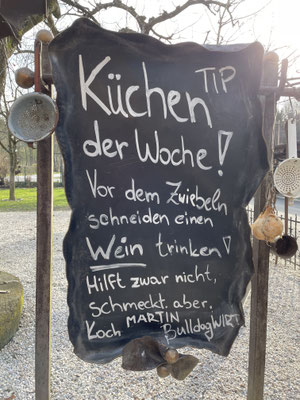 Küchen TIP
der Woche!
Vor dem Zwiebeln
schneiden einen
Wein trinken!
Hilft zwar nicht,
schmeckt aber.
Koch MARTIN
BulldogWIRT